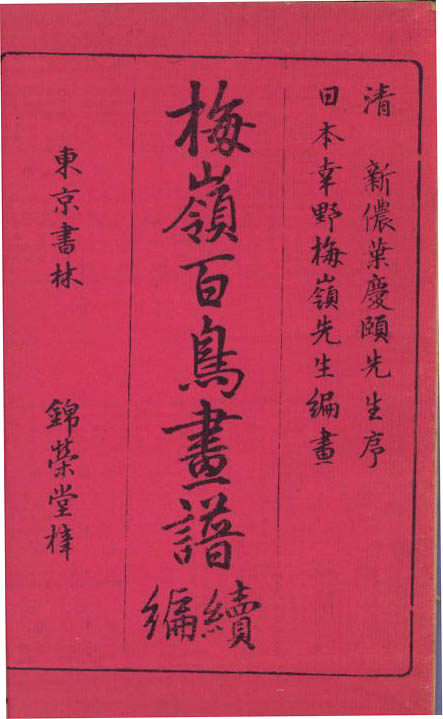 清 新儂葉慶頤先生序
日本幸野梅嶺先生編畫
梅嶺百鳥畫譜
續編
東京書林 錦榮堂梓